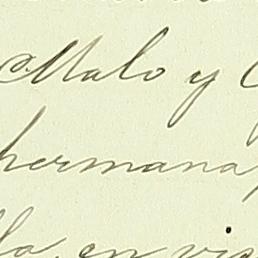 Malo y
hermana,
la, en vis